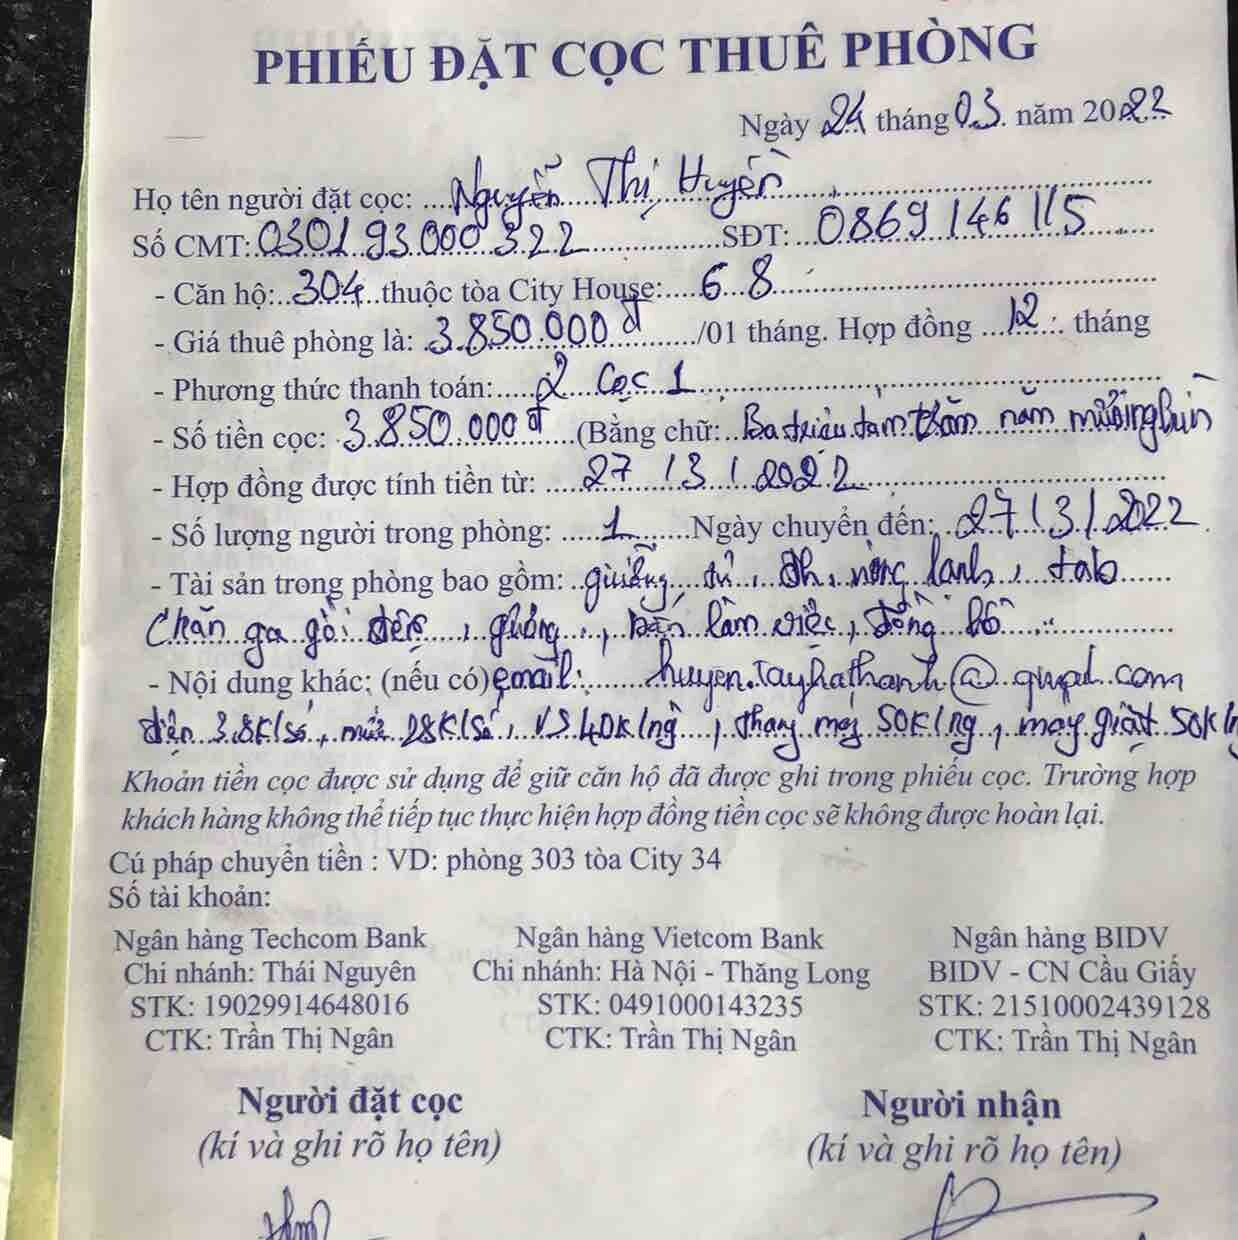 PHIẾU ĐẶT CỌC THUÊ PHÒNG
Ngày 24 tháng 03 năm 2022
Họ tên người đặt cọc: Nguyễn Thị Huyền
Số CMT: 030193000322 SĐT: 0869146115
- Căn hộ: 304 thuộc tòa City House: 68
- Giá thuê phòng là: 3.850.000đ /01 tháng. Hợp đồng 12 tháng
- Phương thức thanh toán: 2 cọc 1
- Số tiền cọc: 3.850.000đ (Bằng chữ: Ba triệu tám trăm năm mươi nghìn
- Hợp đồng được tính tiền từ: 27/3/2022
- Số lượng người trong phòng: 1 Ngày chuyển đến: 27/3/2022
- Tài sản trong phòng bao gồm: giường, tủ, đh, nóng lạnh, tab
Chăn ga gối đệm, bàn làm việc, đồng hồ
- Nội dung khác: (nếu có) email: huyen.tayhathanh@
điện 3.8K/số, nước 28K/số, VS 40K/ng, thang máy 50K/ng, máy giặt 50K/n
Khoản tiền cọc được sử dụng để giữ căn hộ đã được ghi trong phiếu cọc. Trường hợp
khách hàng không thể tiếp tục thực hiện hợp đồng tiền cọc sẽ không được hoàn lại.
Cú pháp chuyển tiền : VD: phòng 303 tòa City 34
Số tài khoản:
Ngân hàng Techcom Bank Ngân hàng Vietcom Bank Ngân hàng BIDV
Chi nhánh: Thái Nguyên Chi nhánh: Hà Nội - Thăng Long BIDV - CN Cầu Giấy
STK: 19029914648016 STK: 0491000143235 STK: 21510002439128
CTK: Trần Thị Ngân CTK: Trần Thị Ngân CTK: Trần Thị Ngân
Người đặt cọc Người nhận
(kí và ghi rõ họ tên) (kí và ghi rõ họ tên)